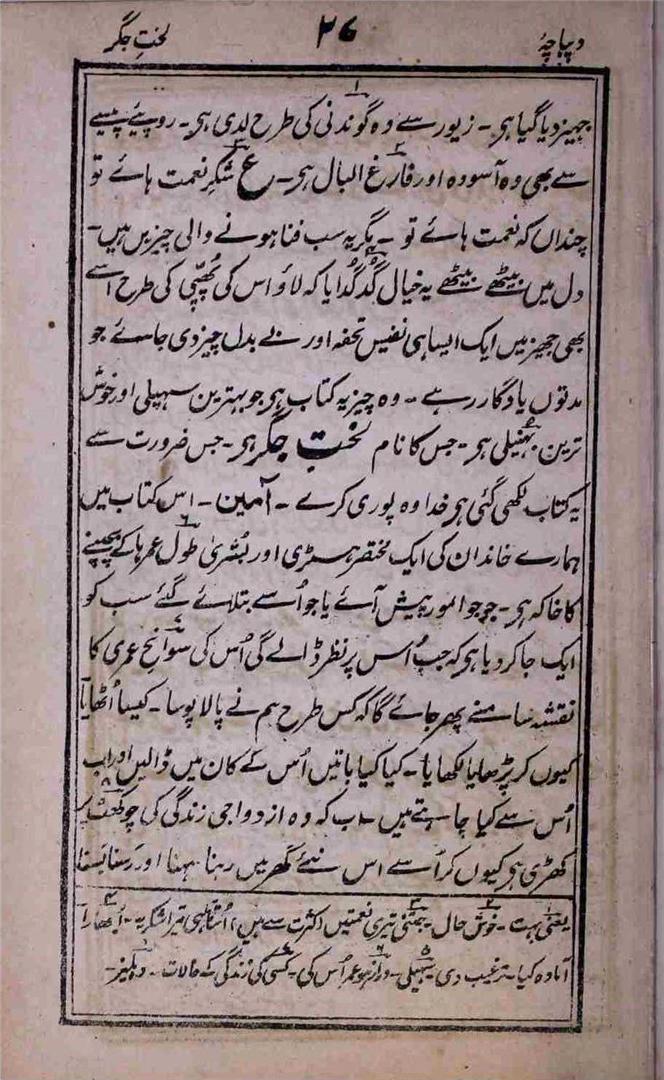 دیباچہ ۲۶ لختِ جگر
جہیز دیا گیا ہی۔ زیور سے وہ گوندنی کی طرح لدی ہی۔ روپیے پیسے
سے بھی وہ آسودہ اور فارغ البال ہی۔ ع شکرِ نعمت ہائے تو
چنداں کہ نعمت ہائے تو۔ مگر یہ سب فنا ہونے والی چیزیں ہیں۔
دل میں بیٹھے بیٹھے یہ خیال گُدگُدایا کہ لاؤ اس کی پھُپی کی طرح اسے
بھی جہیز میں ایک ایسا ہی نفیس تحفہ اور بے بدل چیز دی جائے جو
مدتوں یادگار رہے۔ وہ چیز یہ کتاب ہی جو بہترین سہیلی اور خوش
ترین بہنیلی ہی۔ جس کا نام لختِ جگر ہی۔ جس ضرورت سے
یہ کتاب لکھی گئی ہی خدا وہ پوری کرے۔ آمین۔ اس کتاب میں
ہمارے خاندان کی ایک مختصر ہسٹری اور بُشریٰ طول عمرہا کے بچپنے
کا خاکہ ہی۔ جو جو امور پیش آئے یا جو اُسے بتلائے گئے سب کو
ایک جا کر دیا ہی کہ جب اُس پر نظر ڈالے گی اُس کی سوانح عمری کا
نقشہ سامنے پھر جائے گا کہ کس طرح ہم نے پالا پوسا۔ کیسا اُٹھایا
کیوں کر پڑھایا لکھایا۔ کیا کیا باتیں اُس کے کان میں ڈالیں اور اب
اُس سے کیا چاہتے ہیں۔ اب کہ وہ ازدواجی زندگی کی چوکھٹ پر
کھڑی ہی کیوں کر اُسے اس نئے گھر میں رہنا سہنا اور رَسنا بَسنا
۱ یعنی بہت۔ ۲ خوش حال۔ ۳ جتنی تیری نعمتیں (کثرت سے ہیں) اُتنا ہی تیرا شکریہ۔ ۴ اُبھارا
آمادہ کیا۔ ترغیب دی۔ ۵ سہیلی۔ ۶ دراز ہو عمر اُس کی۔ ۷ کسی کی زندگی کے حالات۔ ۸ دہلیز۔